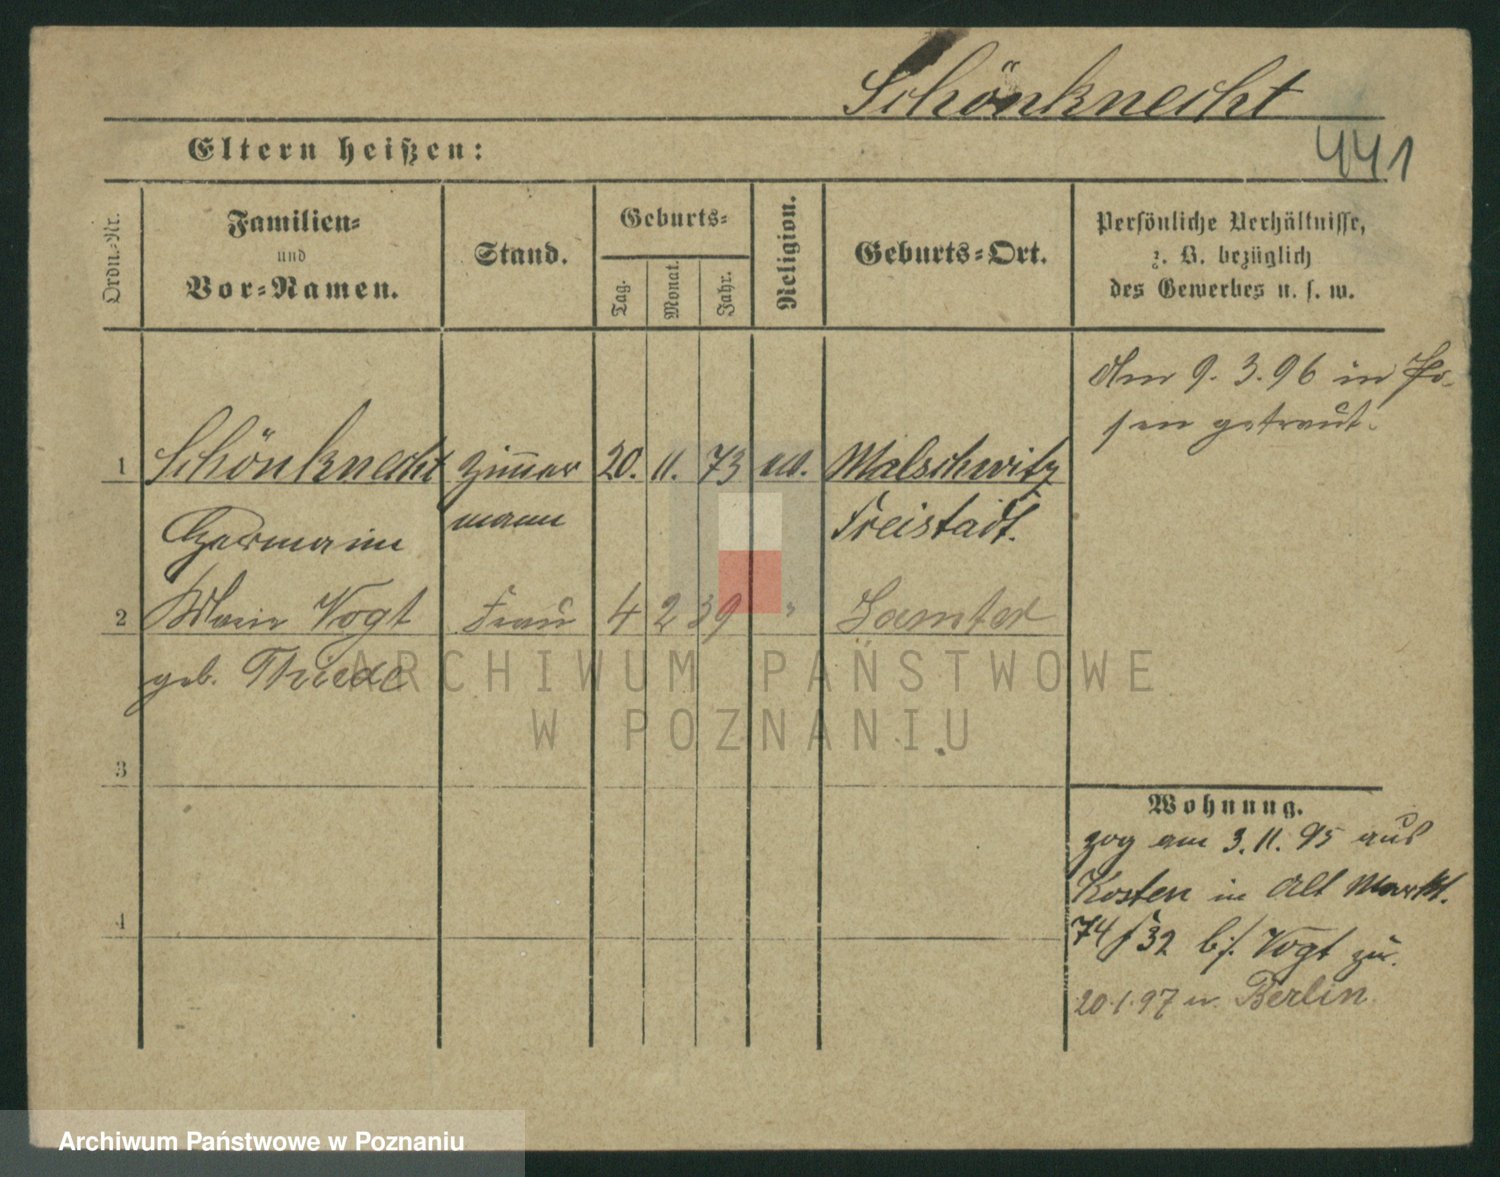 Schönknecht
441
Eltern heißen:
Ordn.-Nr.
Familien-
und
Vor-Namen.
Stand.
Geburts-
Tag.
Monat.
Jahr.
Religion.
Geburts-Ort.
Persönliche Verhältnisse,
z. B. bezüglich
des Gewerbes u. s. w.
Am 9. 3. 96 in Po-
sen getraut.
1 Schönknecht Zimmer 20. 11. 73 ev. Malschwitz
mann Freistadt.
Hermann
2 Marie Vogt Frau 4 2 39 " Samter
geb. Thiede
3
4
Wohnung.
zog am 3. 11. 95 aus
Kosten in Alt Markt.
74 / 32 b/. Vogt zu.
20.1.97 n. Berlin
ARCHIWUM PAŃSTWOWE
W POZNANIU
Archiwum Państwowe w Poznaniu